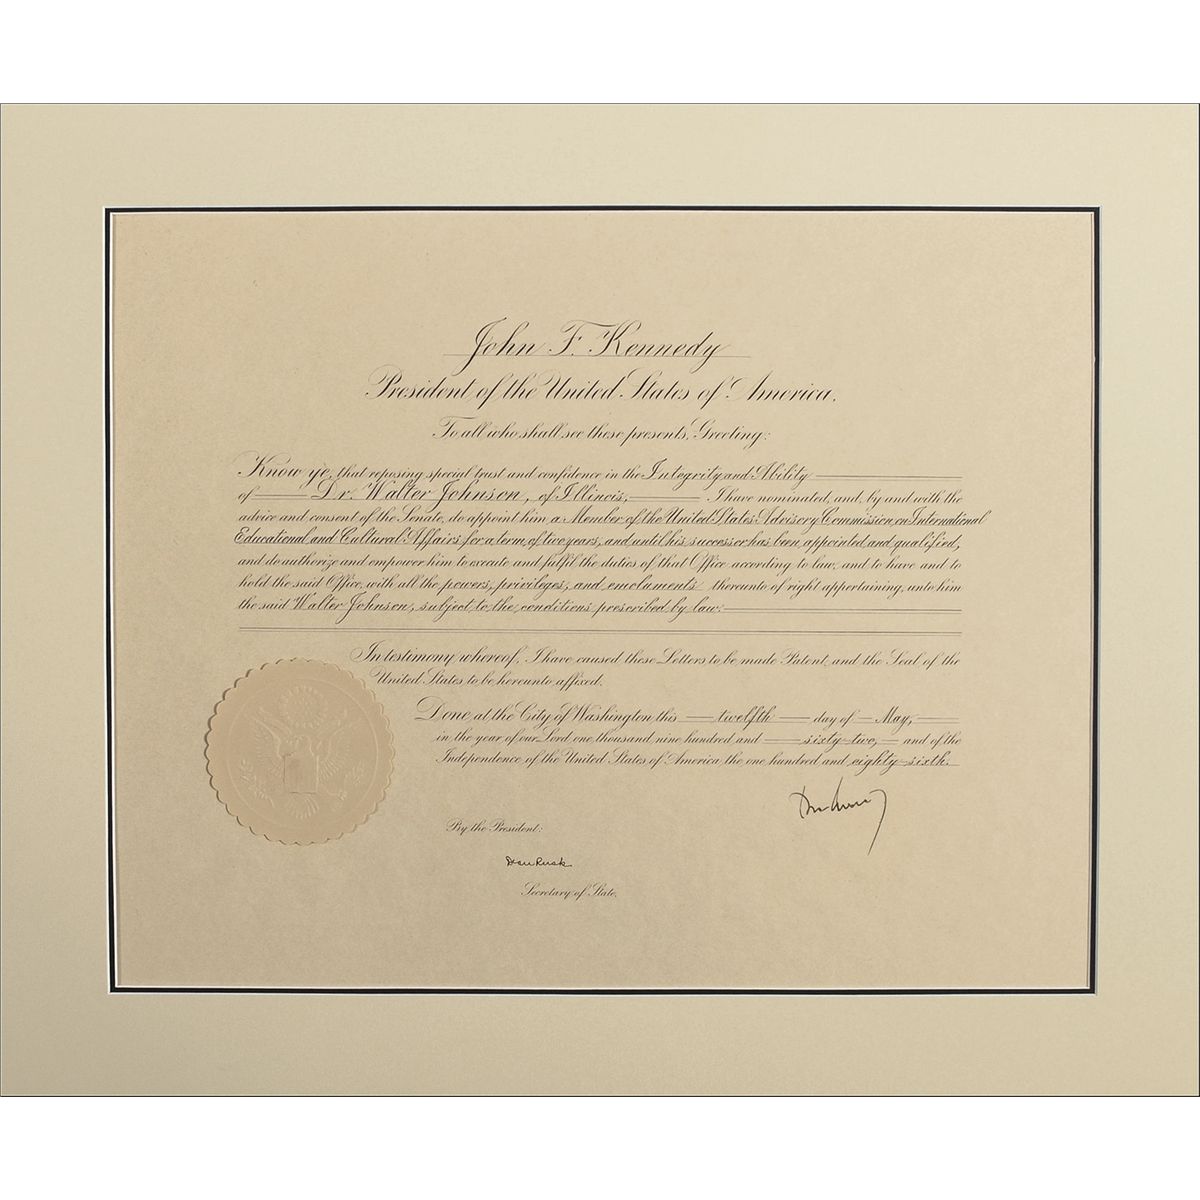 John F. Kennedy
President of the United States of America.
To all who shall see these presents, Greeting:
Know ye, that reposing special trust and confidence in the Integrity and Ability
of Dr. Walter Johnson, of Illinois, I have nominated, and, by and with the
advice and consent of the Senate, do appoint him a Member of the United States Advisory Commission on International
Educational and Cultural Affairs for a term of two years, and until his successor has been appointed and qualified,
and do authorize and empower him to execute and fulfil the duties of that Office according to law, and to have and to
hold the said Office, with all the powers, privileges, and emoluments thereunto of right appertaining, unto him
the said Walter Johnson, subject to the conditions prescribed by law.
In testimony whereof, I have caused these Letters to be made Patent, and the Seal of the
United States to be hereunto affixed.
Done at the City of Washington this twelfth day of May,
in the year of our Lord one thousand nine hundred and sixty-two, and of the
Independence of the United States of America the one hundred and eighty-sixth.
By the President:
Dean Rusk
Secretary of State.